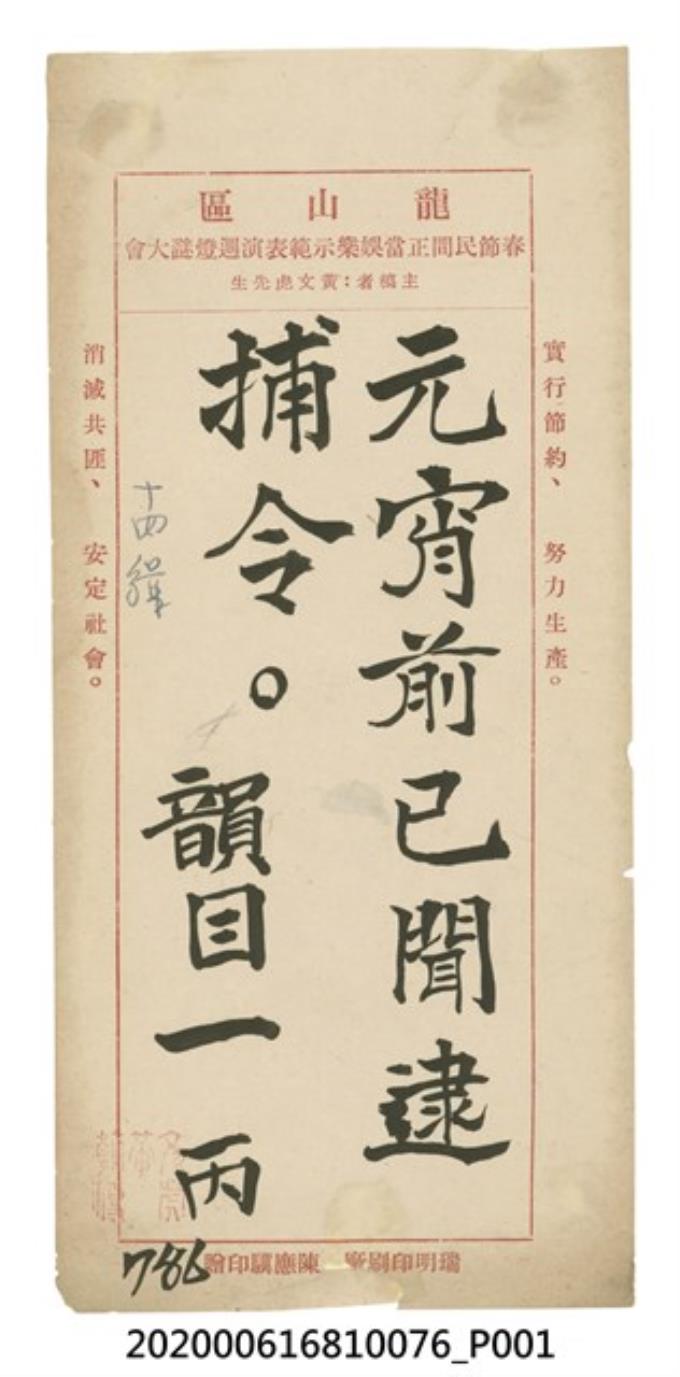 龍山區
春節民間正當娛樂示範表演週燈謎大會
主稿者:黃文虎先生
實行節約、努力生產。
元宵前已聞逮
捕令。韻目一 丙
十四緝
消滅共匪、安定社會。
786
瑞明印刷廠 陳應騏印贈
202000616810076_P001